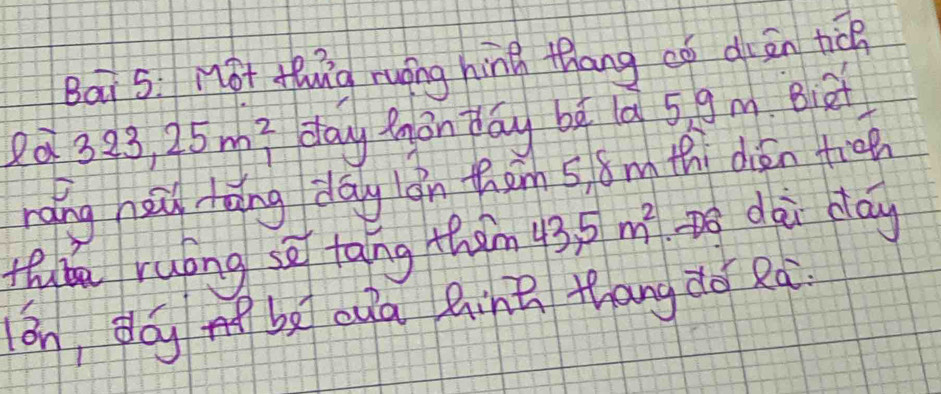 Bài 5: Một thửa ruộng hình thang có diện tích
là 323,25 m², đáy lớn đáy bé là 5,9 m. Biết
rằng nếu tăng đáy lớn thêm 5,8 m thì diện tích
thửa ruộng sẽ tăng thêm 43,5 m². Độ dài đáy
lớn, đáy bé của hình thang đó là: